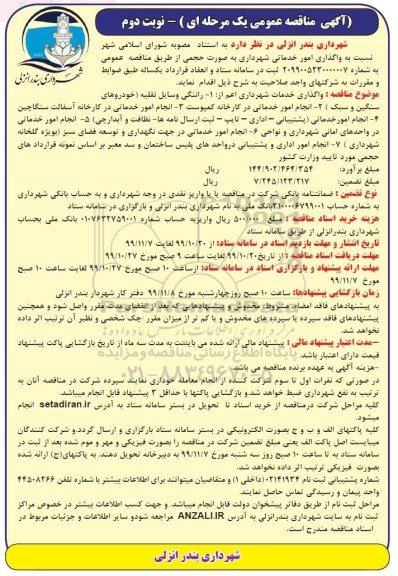 (آگهی مناقصه عمومی یک مرحله ای) - نوبت دوم
شهرداری بندر انزلی در نظر دارد به استناد مصوبه شورای اسلامی شهر
نسبت به واگذاری امور خدماتی شهرداری به صورت حجمی از طریق مناقصه عمومی
به شماره ۲۰۹۹۰۰۵۲۳۰۰۰۰۰۷ ثبت در سامانه ستاد و انعقاد قرارداد یکساله طبق ضوابط
و مقررات به شرکتهای واجد صلاحیت به شرح ذیل اقدام نماید.
شهرداری بندرانزلی
موضوع مناقصه : واگذاری خدمات شهرداری اعم از: ۱- رانندگی وسایل نقلیه (خودروهای
سنگین و سبک) ۲- انجام امور خدماتی در کارخانه کمپوست ۳- انجام امور خدماتی در کارخانه آسفالت سنگاچین
۴- انجام امورخدماتی (پشتیبانی – اداری – تایپ – ثبت ارسال نامه ها- نظافت و آبدارچی) ۵- انجام امور خدماتی
در واحدهای امانی شهرداری و نواحی ۶- انجام امور خدماتی در جهت نگهداری و توسعه فضای سبز (بویژه گلخانه
شهرداری ) ۷- انجام امور اداری و پشتیبانی درواحد های پلیس ساختمان و سد معبر بر اساس نمونه قرارداد های
حجمی مورد تایید وزارت کشور
مبلغ برآورد: ۱۴۴/۹۰۲/۴۶۴/۳۵۴ ریال
مبلغ تضمین: ۷/۲۴۵/۱۲۳/۲۱۷ ریال
نوع تضمین : ضمانتنامه بانکی شرکت در مناقصه یا یا واریز نقدی در وجه شهرداری و به حساب بانکی شهرداری
به شماره حساب ۳۱۰۰۰۰۶۷۹۹۰۰۱ بانک ملی به نام شهرداری بندر انزلی و بارگزاری در سامانه ستاد
هزینه خرید اسناد مناقصه : مبلغ ۵۰۰۰۰۰۰ ریال واریزبه حساب شماره ۰۱۰۷۶۳۲۷۵۹۰۰۱ بانک ملی بحساب
شهرداری بندرانزلی از طریق سامانه ستاد
تاریخ انتشار و مهلت بازدید اسناد در سامانه ستاد: از ۹۹/۱۰/۲۰ لغایت ۹۹/۱۱/۷
مهلت دریافت اسناد مناقصه : از تاریخ ۹۹/۱۰/۲۰ لغایت ساعت ۹ صبح مورخ ۹۹/۱۰/۲۷
مهلت ارائه پیشنهاد و بارگزاری اسناد در سامانه ستاد: ازساعت ۱۰ صبح مورخ ۹۹/۱۰/۲۷ لغایت ساعت ۱۰ صبح
مورخ ۹۹/۱۱/۷
زمان بازگشایی پیشنهادها: ساعت ۱۰ صبح روزچهارشنبه مورخ ۹۹/۱۱/۸ دفتر کار شهردار بندر انزلی
به پیشنهادهای فاقد امضاء، مشروط، مخدوش و پیشنهادهایی که بعد از انقضای مدت مقرر واصل شود و همچنین
پیشنهادهای فاقد سپرده یا سپرده های مخدوش و یا کم تر از میزان مقرر -چک شخصی و نظیر آن ترتیب اثر داده
نخواهد شد.
-مدت اعتبار پیشنهاد مالی : پیشنهاد مالی ارائه شده می بایست به مدت سه ماه از تاریخ بازگشایی پاکت پیشنهاد
قیمت دارای اعتبار باشد.
-هزینه آگهی به عهده برنده مناقصه می باشد.
در صورتی که نفرات اول تا سوم شرکت کننده از انجام معامله خودداری نمایند سپرده شرکت در مناقصه آنان به
ترتیب به نفع شهرداری ضبط خواهد شد.و بازگشایی پاکتها با حداقل ۳ پیشنهاد قابل انجام میباشد.
کلیه مراحل شرکت درمناقصه از خرید اسناد تا تحویل در بستر سامانه ستاد به آدرس setadiran.ir انجام
میشود.
کلیه پاکتهای الف و ب و ج بصورت الکترونیکی در بستر سامانه ستاد بارگزاری و ارسال گردد.و شرکت کنندگان
میبایست اصل پاکت الف یعنی مبلغ تضمین شرکت در مناقصه را بصورت فیزیکی و مهر و موم شده بعد از ثبت در
سامانه ستاد به تا ساعت ۱۰ صبح روز سه شنبه مورخ ۹۹/۱۱/۷ به دبیرخانه تحویل دهند. به پاکتهای(ج) ارائه شده
بصورت فیزیکی ترتیب اثر داده نخواهد شد.
شماره پشتیبانی ثبت نام ۰۲۱۴۱۹۳۴ (داخلی ۱) و متقاضیان میتوانند برای اطلاعات بیشتر با شماره تلفن ۴۴۵۰۸۲۶۶
واحد پیمان و رسیدگی تماس حاصل نمایند.
مراحل ثبت نام از طریق دفاتر پیشخوان دولت قابل انجام میباشد. و جهت کسب اطلاعات بیشتر در خصوص مراکز
ثبت نام به سایت شهرداری بندرانزلی به آدرس ANZALI.IR مراجعه شودو سایر اطلاعات و جزئیات مربوط در
اسناد مناقصه مندرج است.
شهرداری بندر انزلی
پایگاه اطلاع رسانی مناقصه و مزایده
۰۲۱-۸۸۳۴۹۶۷۰-۵